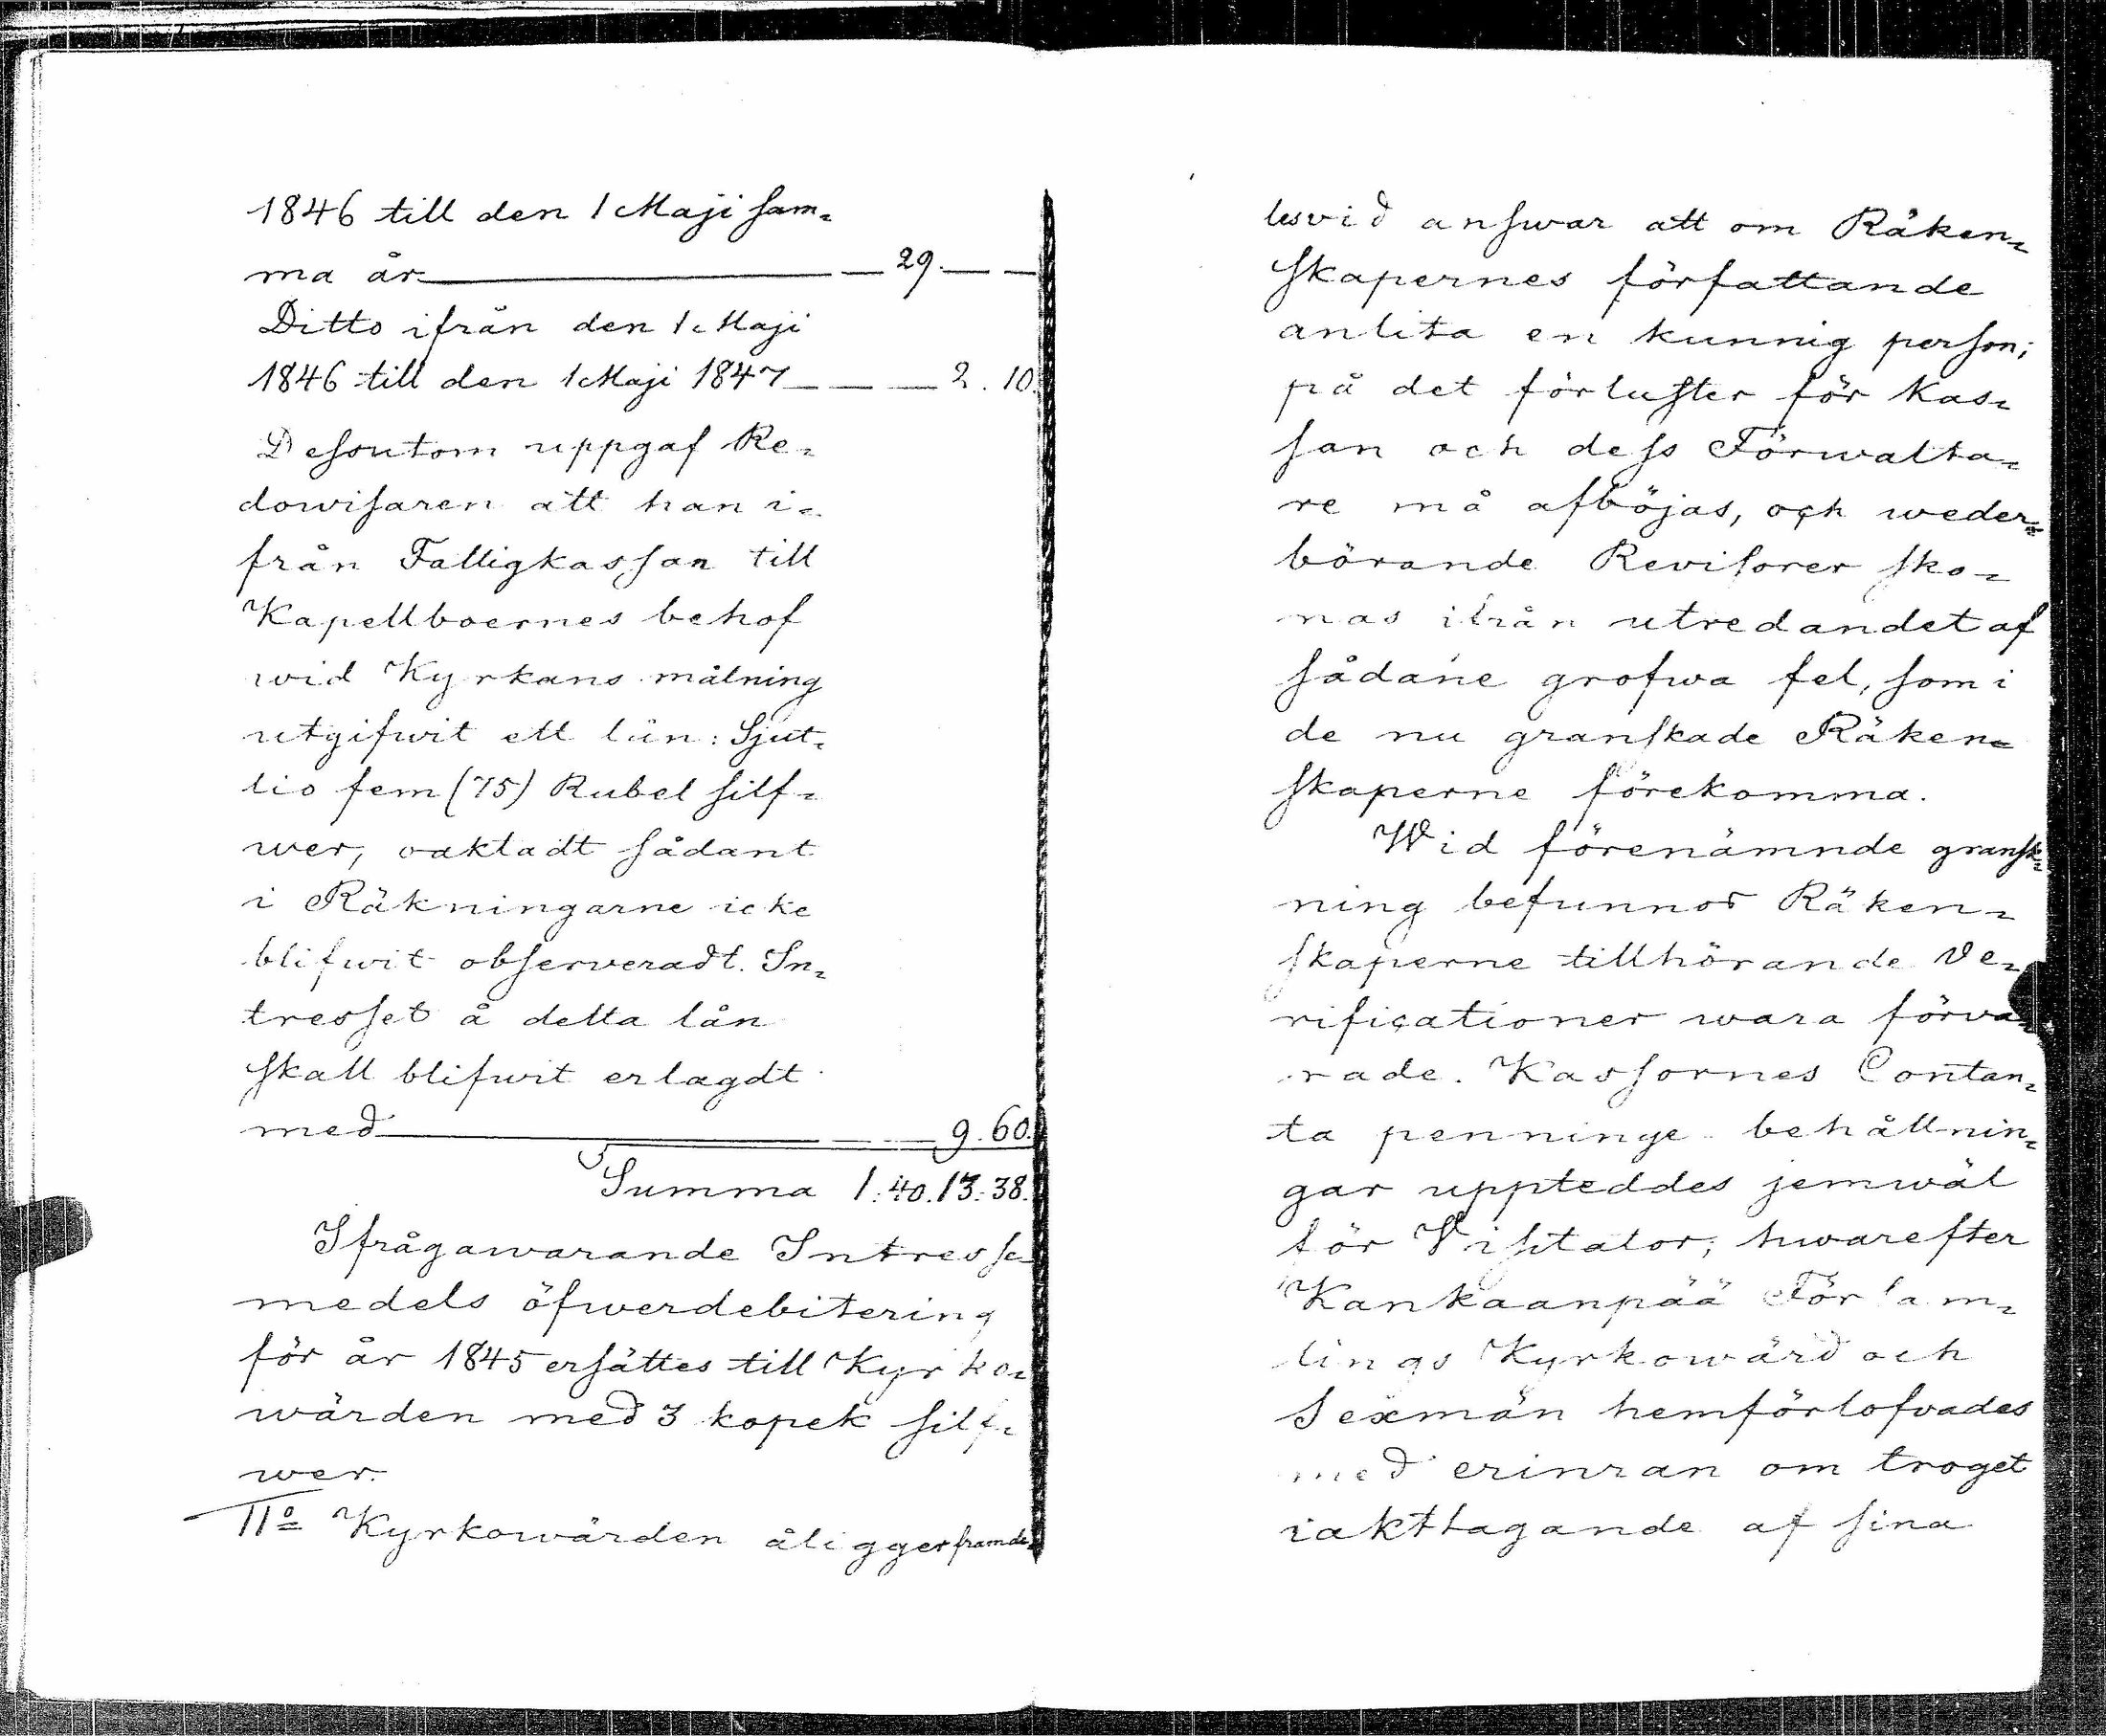 1846 till den 1 Maji sam-
ma år — 29. — —
Ditto ifrån den 1 Maji
1846 till den 1 Maji 1847 — — — 2. 10.
Dessutom uppgaf Re-
dowisaren att han i-
från Fattigkassan till
Kapellboernes behof
wid Kyrkans målning
utgifwit ett lån: Sjut-
tio fem (75) Rubel silf-
wer, oaktadt sådant
i Räkningarne icke
blifwit observeradt. In-
tresset å detta lån
skall blifwit erlagdt
med — — — 9. 60.
Summa 1: 40. 13. 38.
Ifrågawarande Intresse-
medels öfwerdebitering
för år 1845 ersättes till Kyrko-
wärden med 3 kopek silf-
wer.
11º Kyrkowärden åligger framde-
les vid answar att om Räken-
skapernes författande
anlita en kunnig person;
på det förluster för Kas-
san och dess Förwalta-
re må afböjas, och weder-
börande Revisorer sko-
nas ifrån utredandet af
sådane grofwa fel, som i
de nu granskade Räken-
skaperne förekomma.
Wid förenämnde gransk-
ning befunnos Räken-
skaperne tillhörande Ve-
rificationer wara förva-
rade. Kassornes Contan-
ta penninge behållnin-
gar uppteddes jemwäl
för Visitator; hwarefter
Kankaanpää Försam-
lings Kyrkowärd och
Sexmän hemförlofvades
med erinran om troget
iakttagande af sina